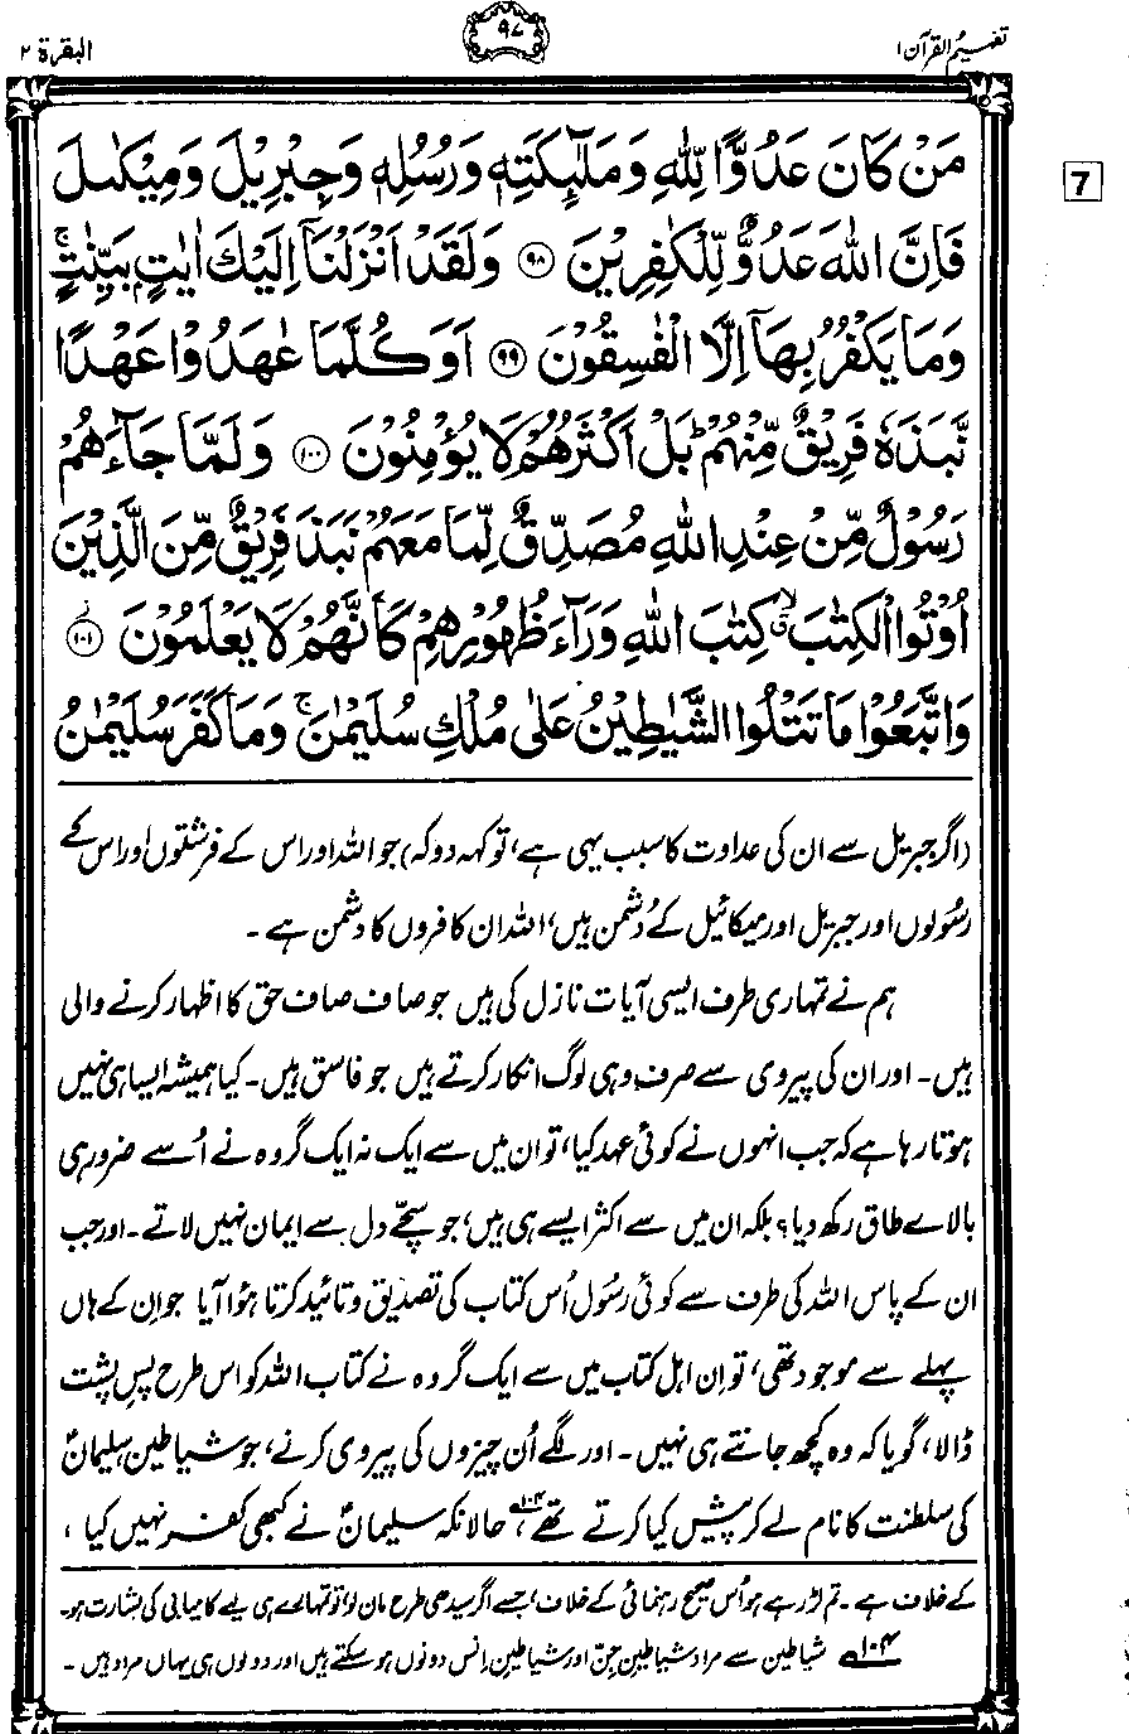 تفہیم القرآن ۱
۹۷
البقرة ۲
مَنْ كَانَ عَدُوًّا لِّلّٰهِ وَمَلٰٓئِكَتِهٖ وَرُسُلِهٖ وَجِبْرِيْلَ وَمِيْكٰىلَ
فَاِنَّ اللّٰهَ عَدُوٌّ لِّلْكٰفِرِيْنَ ۹۸ وَلَقَدْ اَنْزَلْنَآ اِلَيْكَ اٰيٰتٍۭ بَيِّنٰتٍ ۚ
وَمَا يَكْفُرُ بِهَآ اِلَّا الْفٰسِقُوْنَ ۹۹ اَوَكُلَّمَا عٰهَدُوْا عَهْدًا
نَّبَذَهٗ فَرِيْقٌ مِّنْهُمْ ؕ بَلْ اَكْثَرُهُمْ لَا يُؤْمِنُوْنَ ۱۰۰ وَلَمَّا جَآءَهُمْ
رَسُوْلٌ مِّنْ عِنْدِ اللّٰهِ مُصَدِّقٌ لِّمَا مَعَهُمْ نَبَذَ فَرِيْقٌ مِّنَ الَّذِيْنَ
اُوْتُوا الْكِتٰبَ ۙ ق كِتٰبَ اللّٰهِ وَرَآءَ ظُهُوْرِهِمْ كَاَنَّهُمْ لَا يَعْلَمُوْنَ ۱۰۱
وَاتَّبَعُوْا مَا تَتْلُوا الشَّيٰطِيْنُ عَلٰى مُلْكِ سُلَيْمٰنَ ۚ وَمَا كَفَرَ سُلَيْمٰنُ
7
(اگر جبریل سے ان کی عداوت کا سبب یہی ہے، تو کہہ دو کہ) جو اللہ اور اس کے فرشتوں اور اس کے
رسُولوں اور جبریل اور میکائیل کے دُشمن ہیں، اللہ ان کافروں کا دشمن ہے۔
ہم نے تمہاری طرف ایسی آیات نازل کی ہیں جو صاف صاف حق کا اظہار کرنے والی
ہیں۔ اور ان کی پیروی سے صرف وہی لوگ انکار کرتے ہیں جو فاسق ہیں۔ کیا ہمیشہ ایسا ہی نہیں
ہوتا رہا ہے کہ جب انہوں نے کوئی عہد کیا، تو ان میں سے ایک نہ ایک گروہ نے اُسے ضرور ہی
بالائے طاق رکھ دیا؟ بلکہ ان میں سے اکثر ایسے ہی ہیں، جو سچّے دل سے ایمان نہیں لاتے۔ اور جب
ان کے پاس اللہ کی طرف سے کوئی رسُول اُس کتاب کی تصدیق و تائید کرتا ہوٗا آیا جو اِن کے ہاں
پہلے سے موجود تھی، تو اِن اہل کتاب میں سے ایک گروہ نے کتاب اللہ کو اس طرح پسِ پشت
ڈالا، گویا کہ وہ کچھ جانتے ہی نہیں۔ اور لگے اُن چیزوں کی پیروی کرنے، جو شیاطین، سلیمانؑ
کی سلطنت کا نام لے کر پیش کیا کرتے تھے۱۰۴، حالانکہ سلیمانؑ نے کبھی کفر نہیں کیا،
کے خلاف ہے۔ تم لڑ رہے ہو اُس صحیح رہنمائی کے خلاف، جسے اگر سیدھی طرح مان لو، تو تمہارے ہی لیے کامیابی کی بشارت ہو۔
۱۰۴ شیاطین سے مراد شیاطینِ جِنّ اور شیاطینِ اِنس دونوں ہو سکتے ہیں اور دونوں ہی یہاں مراد ہیں۔